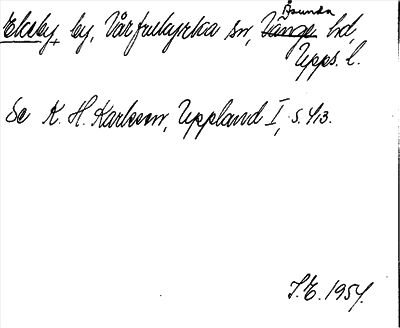 Åsunda
Ekeby, by, Vårfrukyrka sn, Lång hd,
Upps. l.
Se K. H. Karlsson, Uppland I, s. 413.
I.E. 1954.